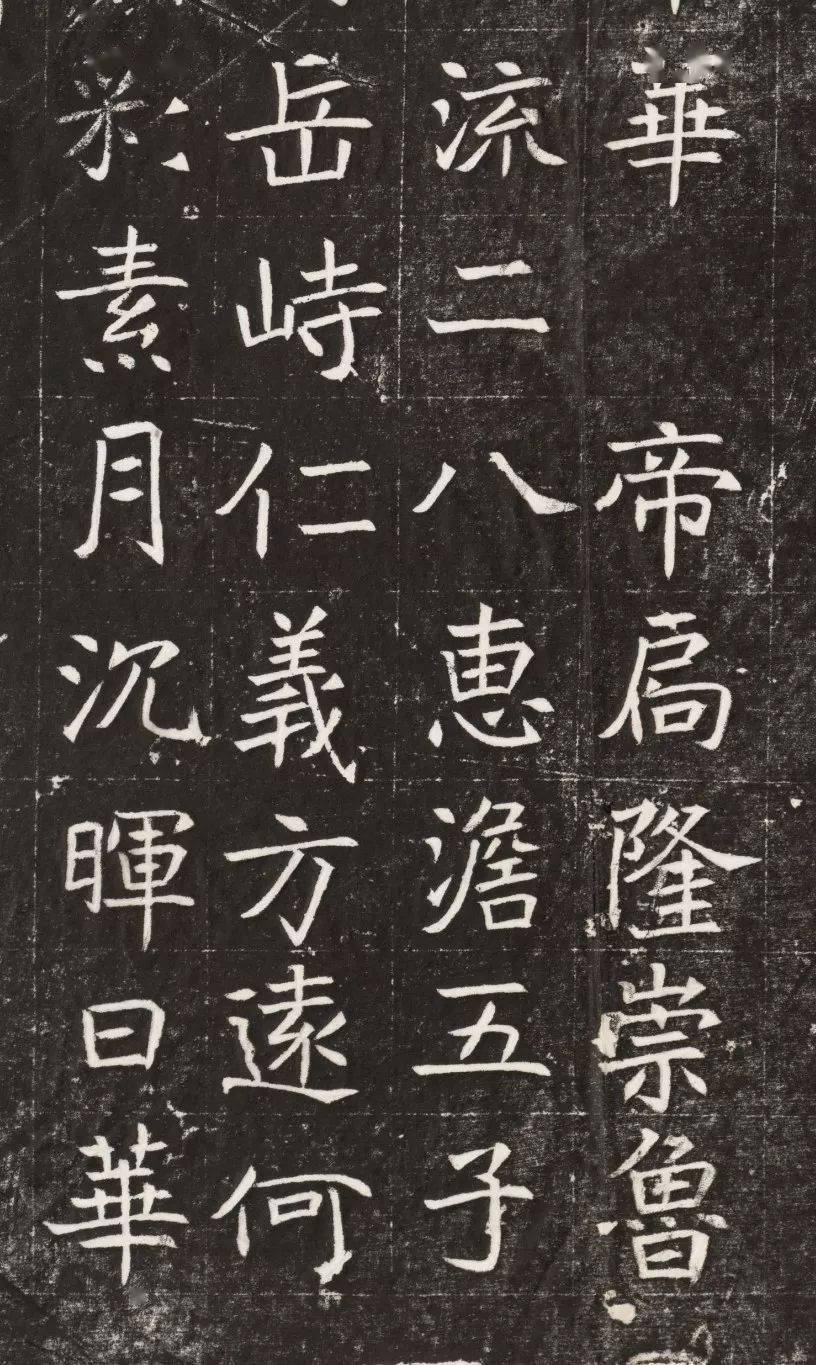 華 帝扃隆崇魯
流二八恵澹五子
岳峙仁義方逺何
彩素月沉暉日華